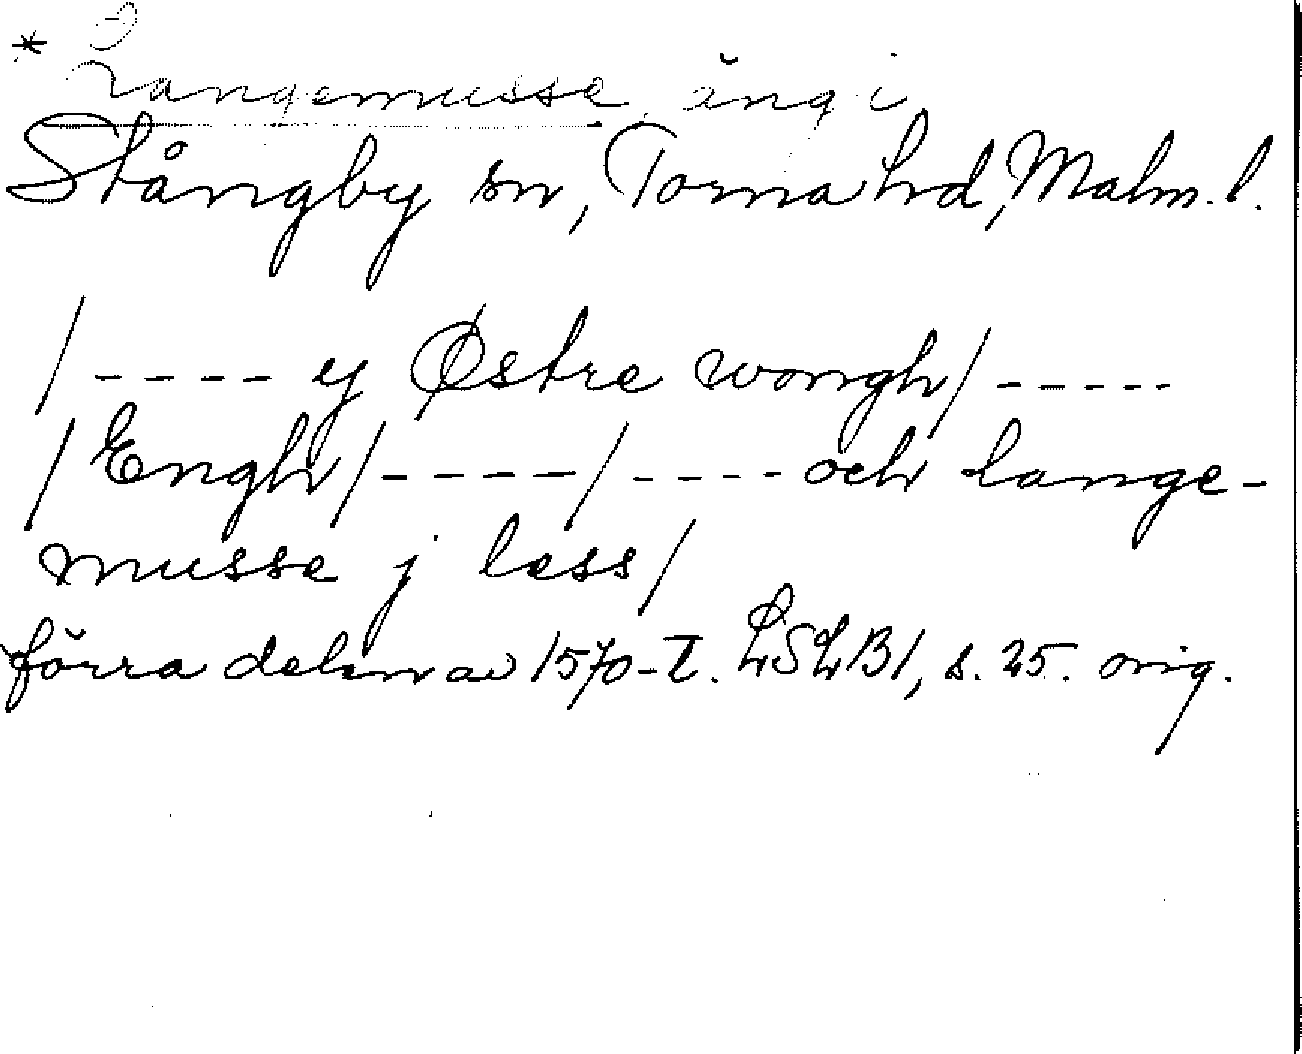 * Langemusse, äng i
Stångby sn, Torna hd, Malm. l.
/---- ij Østre wongh/-----
/Engh/----/---- och lange-
musse j less/
förra delen av 1570-t. LSLB1, s. 25. orig.